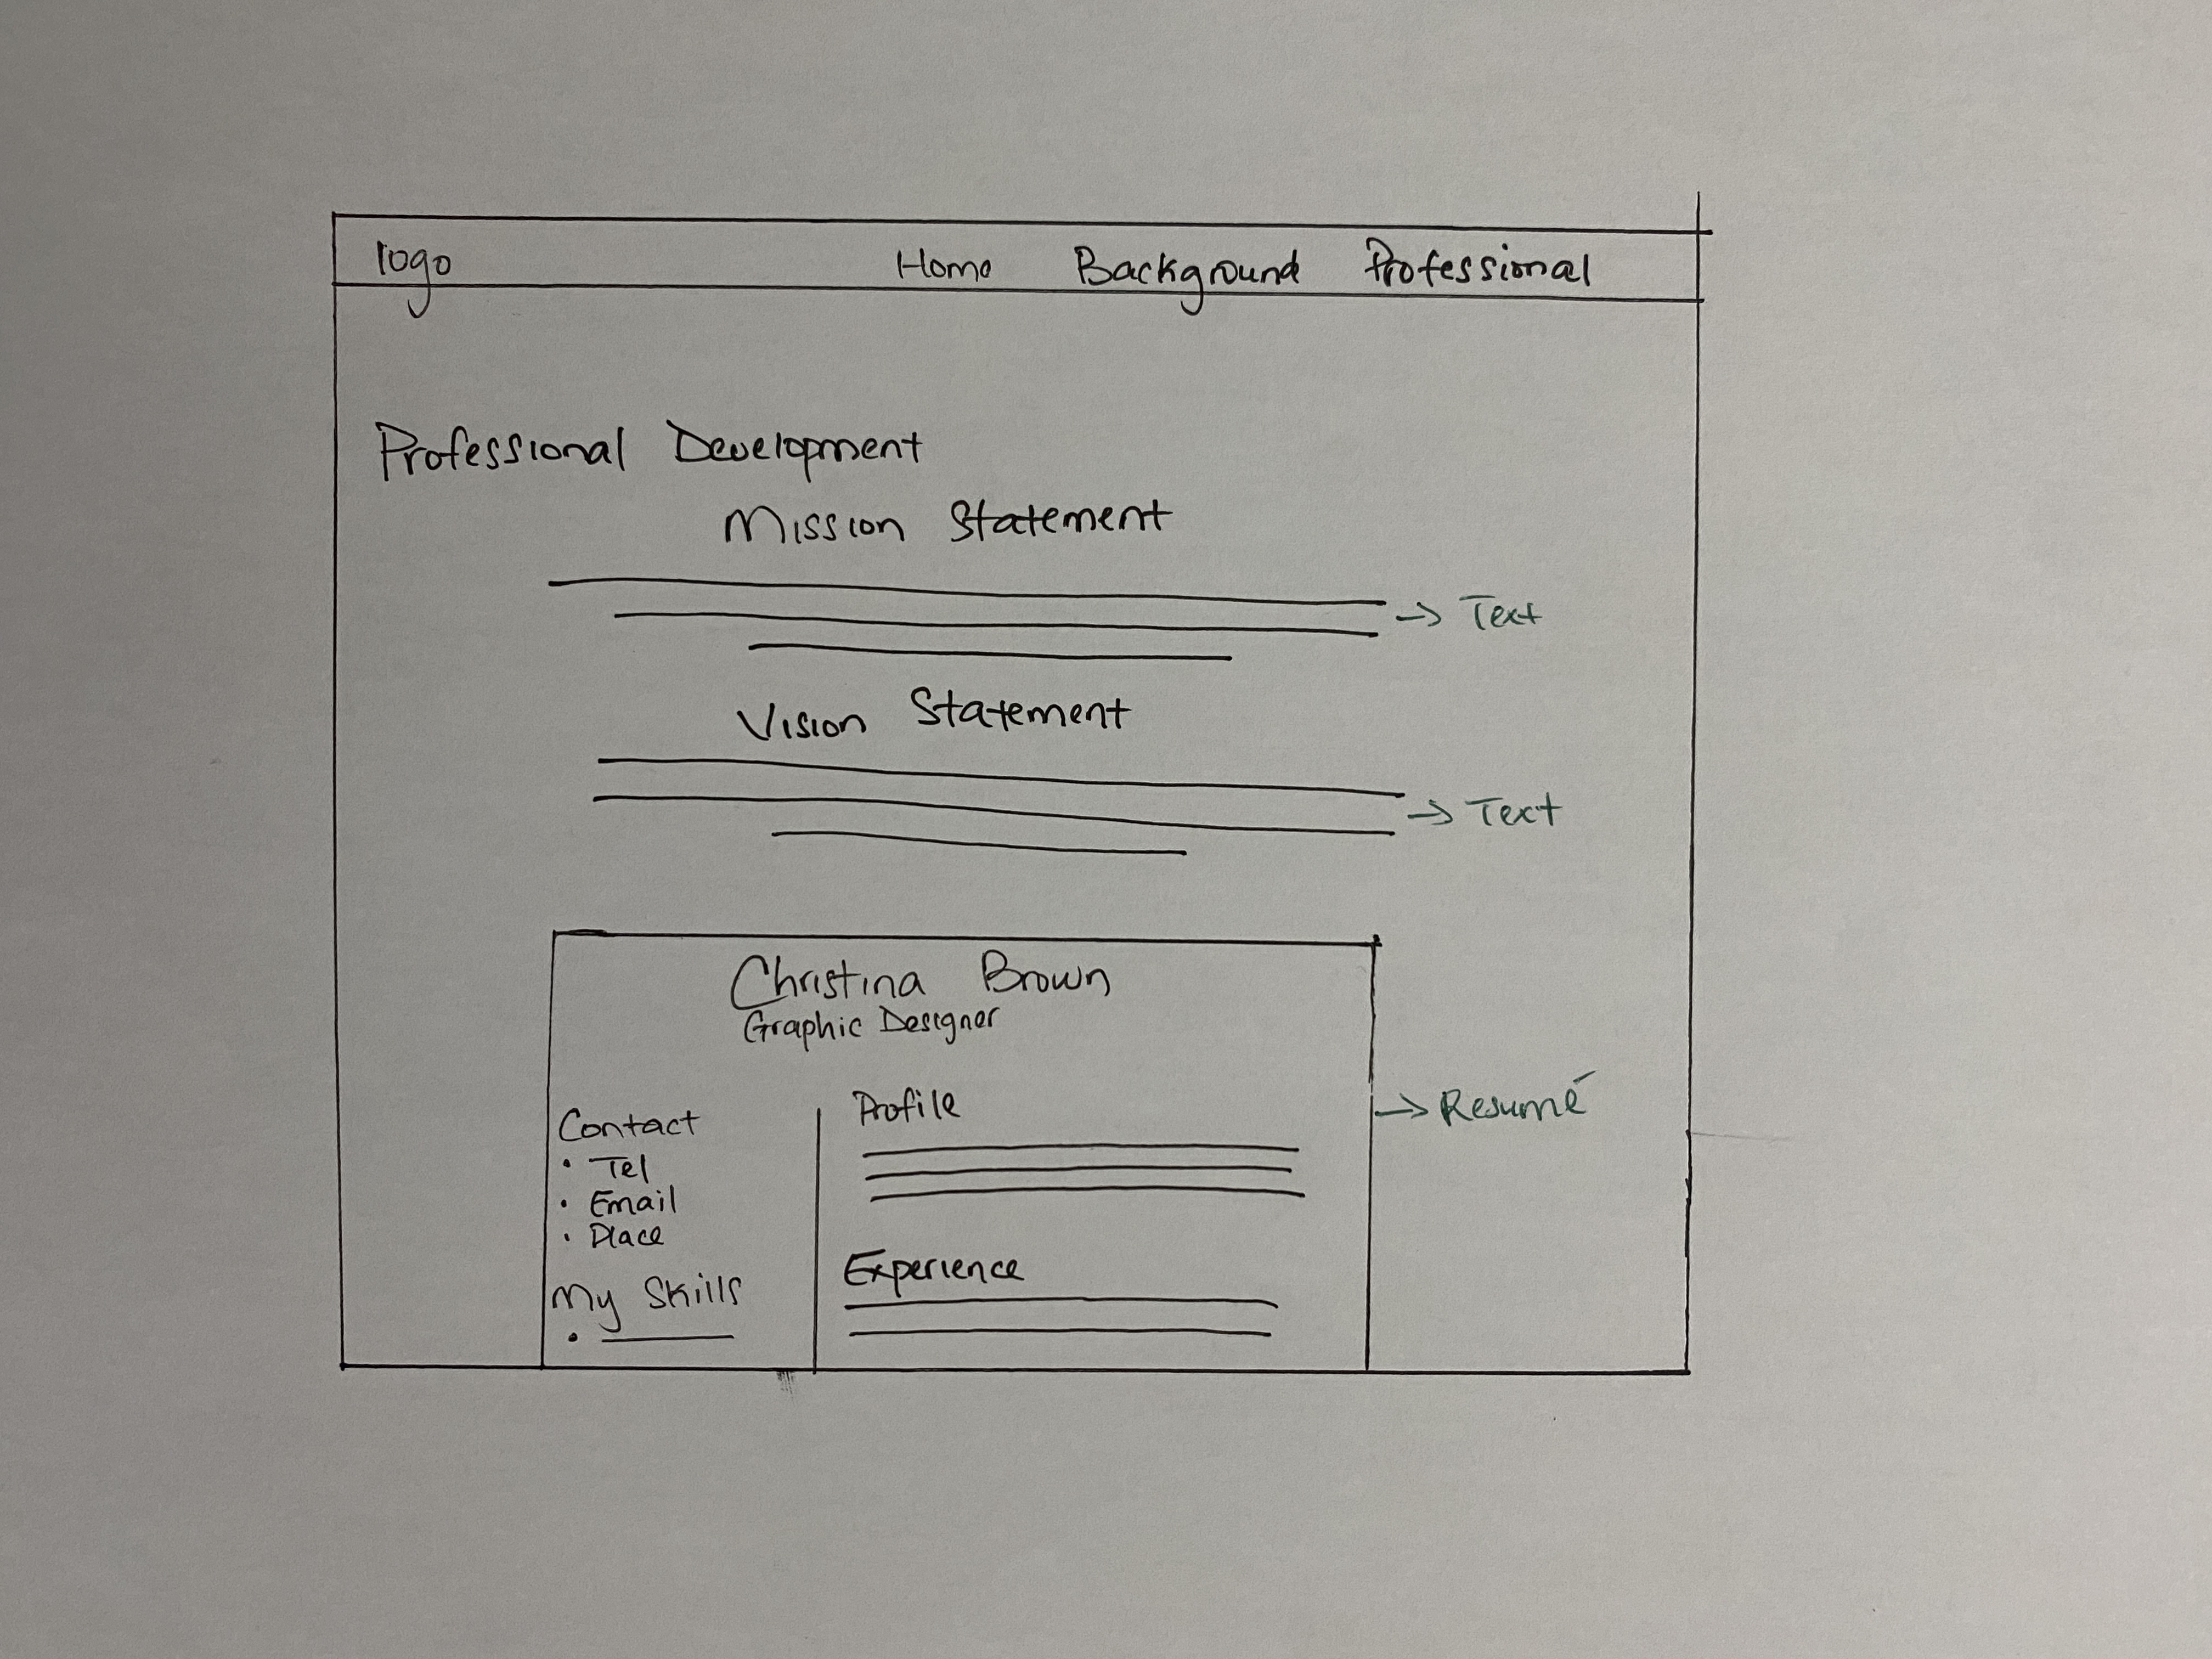 logo Home Background Professional
Professional Development
Mission Statement
→ Text
Vision Statement
→ Text
Christina Brown
Graphic Designer
Contact
• Tel
• Email
• Place
My Skills
•
Profile
Experience
→ Resumé